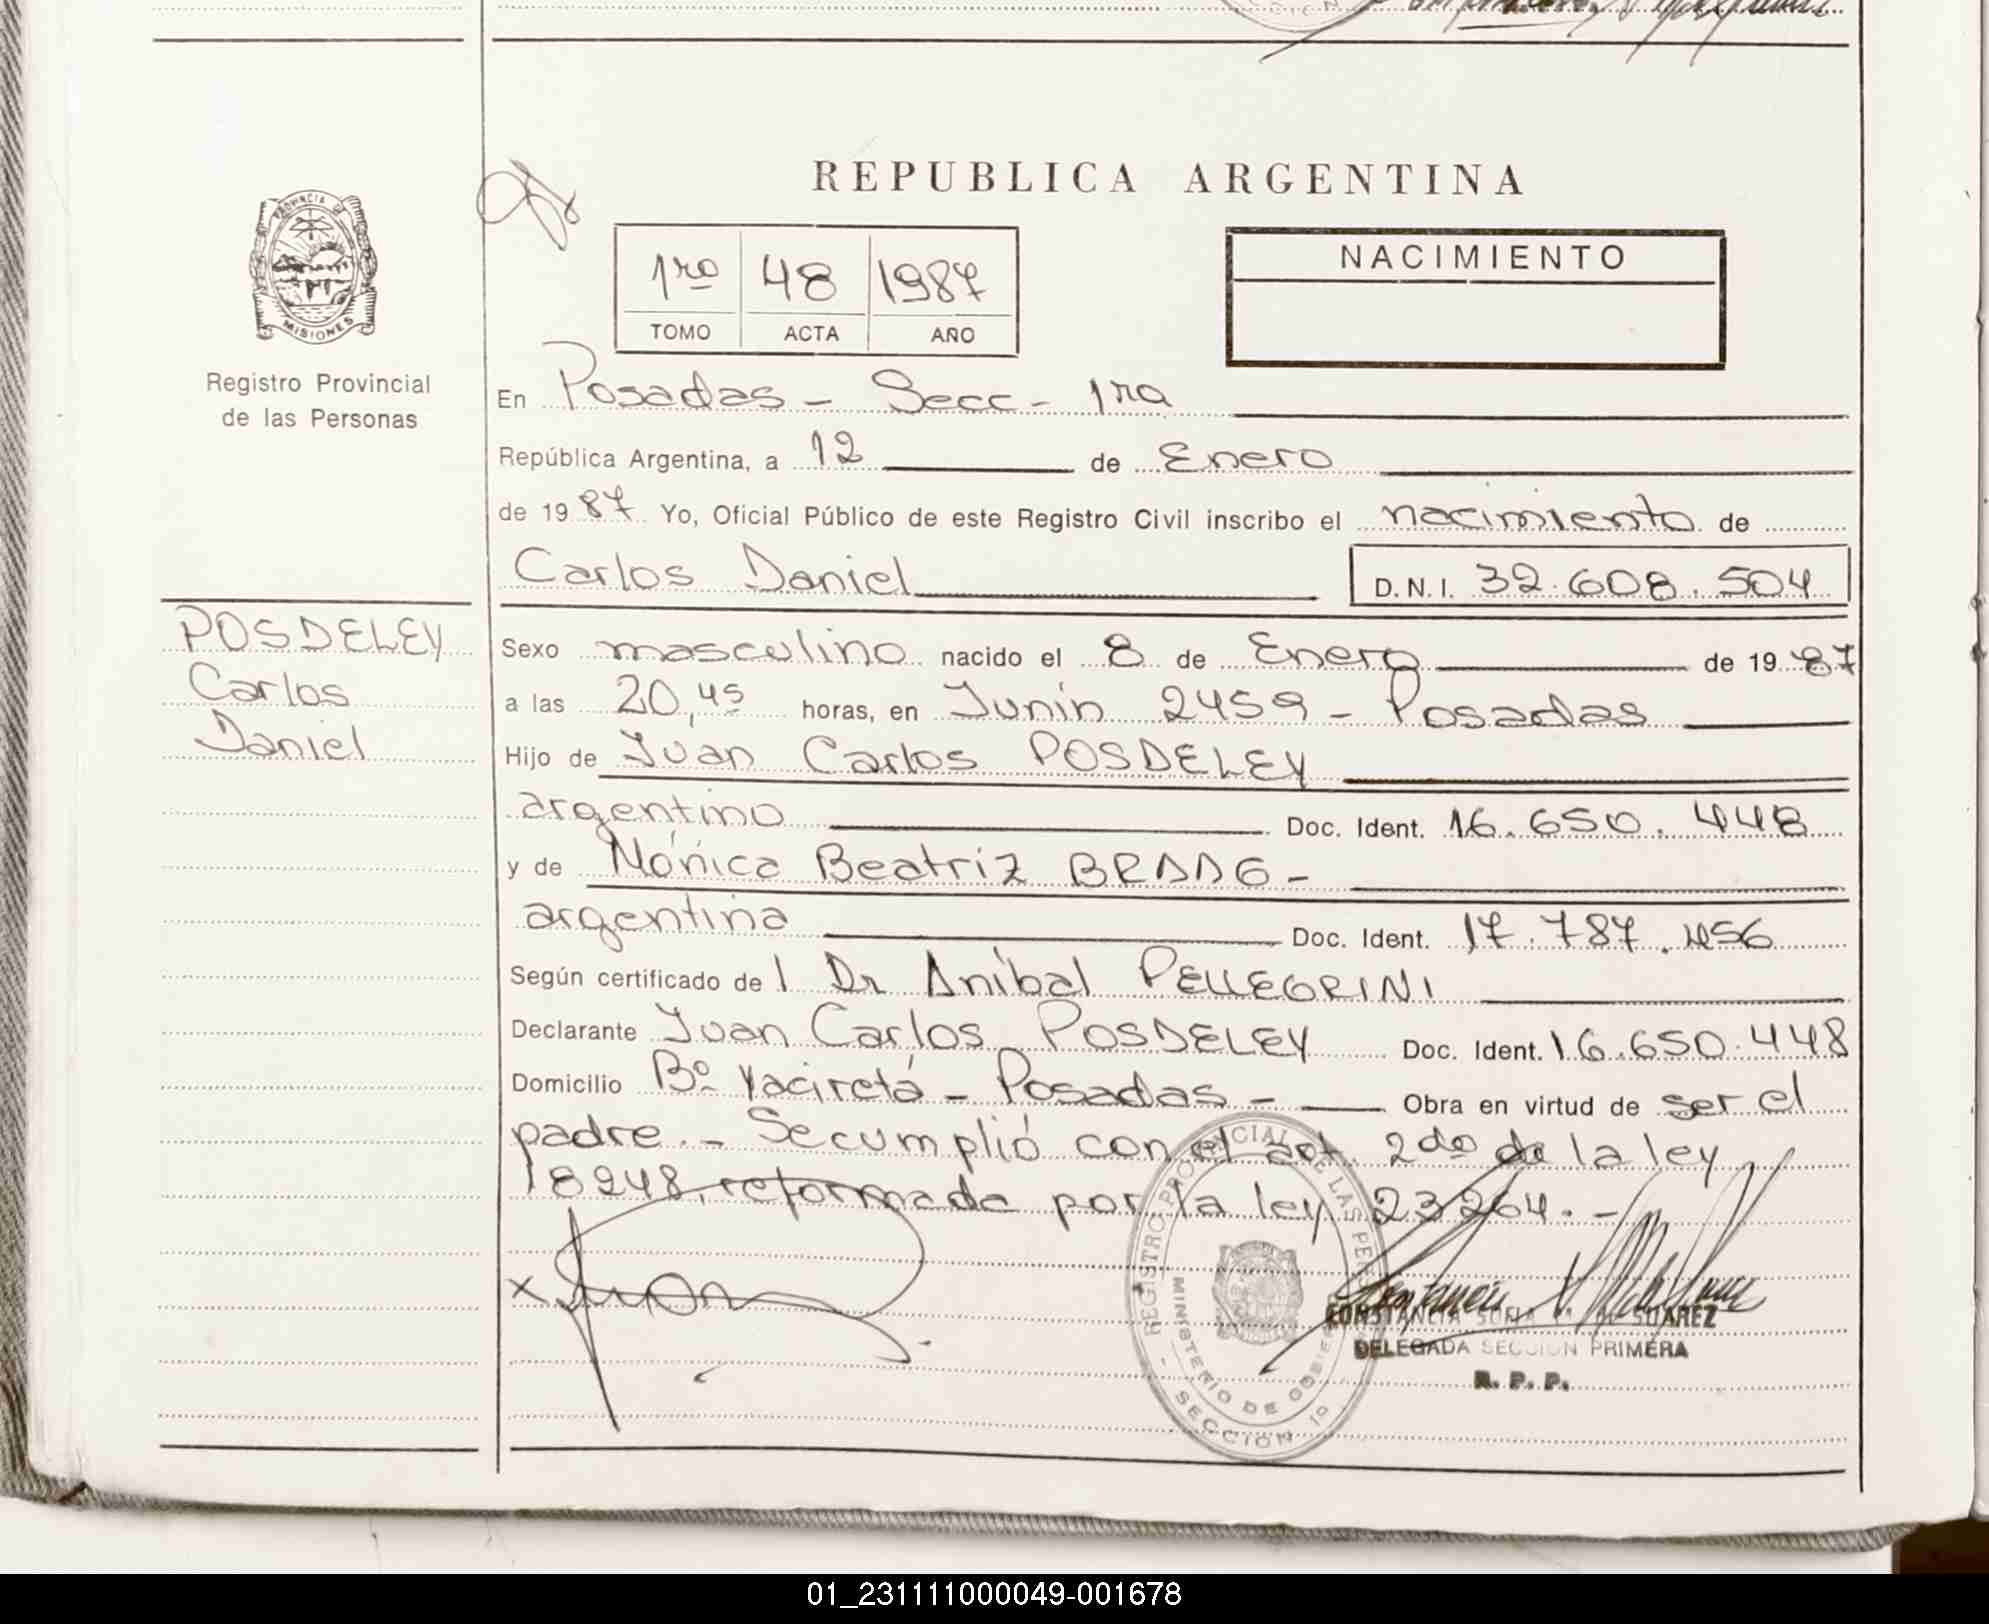 REPUBLICA ARGENTINA
PROVINCIA DE
MISIONES
Registro Provincial
de las Personas
1ro 48 1987
TOMO ACTA AÑO
NACIMIENTO
En Posadas - Secc - 1ra
República Argentina, a 12 de Enero
de 1987 Yo, Oficial Público de este Registro Civil inscribo el nacimiento de
Carlos Daniel D.N.I. 32.608.504
POSDELEY
Carlos
Daniel
Sexo masculino nacido el 8 de Enero de 1987
a las 20,45 horas, en Junín 2459 - Posadas
Hijo de Juan Carlos POSDELEY
argentino Doc. Ident. 16.650.448
y de Mónica Beatriz BRAAG -
argentina Doc. Ident. 17.787.456
Según certificado de l Dr Aníbal PELLEGRINI
Declarante Juan Carlos POSDELEY Doc. Ident. 16.650.448
Domicilio Bº Yaciretá - Posadas - Obra en virtud de ser el
padre. - Se cumplió con el art. 2do de la ley
18248, reformada por la ley 23264. -
REGISTRO PROVINCIAL DE LAS PE
MINISTERIO DE GOBIE
- SECCION 1º
x
CONSTANCIA SUAREZ
DELEGADA SECCION PRIMERA
R. P. P.
01_231111000049-001678